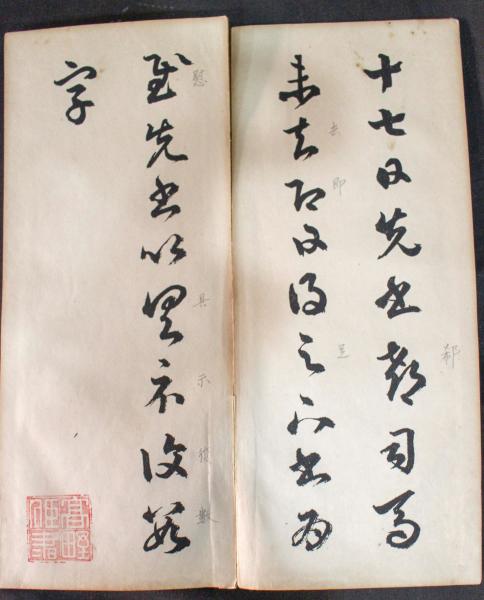 十七日先書郗司馬
郗
未去即日得足下書為
去 即 足
慰先書以具示復數
慰 具 示 復 数
字